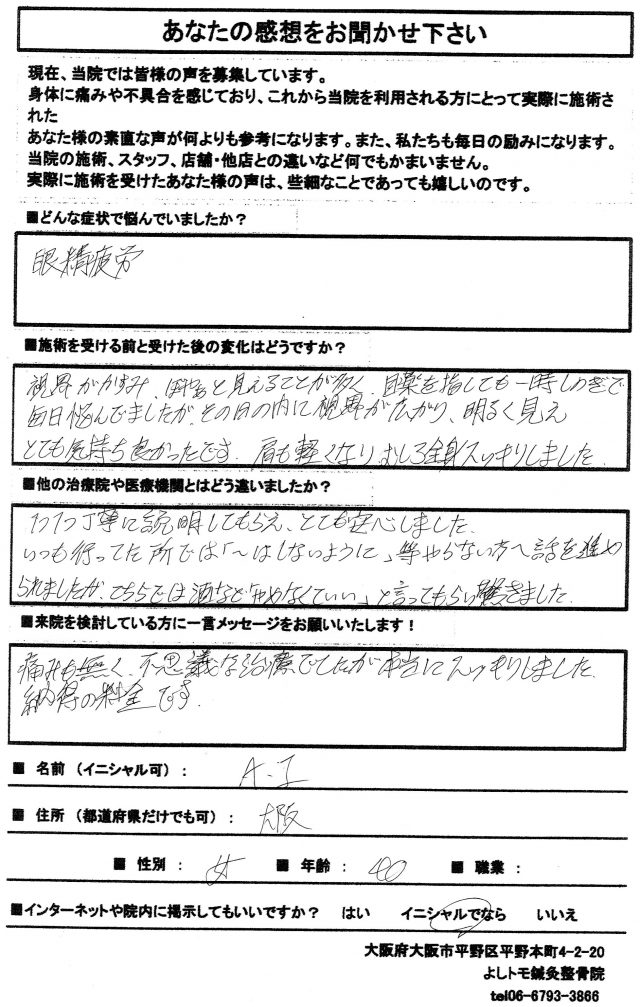 あなたの感想をお聞かせ下さい
現在、当院では皆様の声を募集しています。
身体に痛みや不具合を感じており、これから当院を利用される方にとって実際に施術さ
れた
あなた様の素直な声が何よりも参考になります。また、私たちも毎日の励みになります。
当院の施術、スタッフ、店舗・他店との違いなど何でもかまいません。
実際に施術を受けたあなた様の声は、些細なことであっても嬉しいのです。
■どんな症状で悩んでいましたか？
眼精疲労
■施術を受ける前と受けた後の変化はどうですか？
視界がかすみ、ぼやぁと見えることが多く、目薬を指しても一時しのぎで
毎日悩んでましたが、その日の内に視界が広がり、明るく見え
とても気持ち良かったです。肩も軽くなりむしろ全身スッキリしました。
■他の治療院や医療機関とはどう違いましたか？
1つ1つ丁寧に説明してもらえ、とても安心しました。
いつも行ってた所では「～はしないように」等やらない方へ話を進め
られましたが、こちらでは酒など「やめなくていい」と言ってもらい驚きました。
■来院を検討している方に一言メッセージをお願いいたします！
痛みも無く、不思議な治療でしたが本当にスッキリしました。
納得の料金です。
■ 名前（イニシャル可）： A.I
■ 住所（都道府県だけでも可）： 大阪
■ 性別： 女 ■ 年齢： 40 ■ 職業：
■インターネットや院内に掲示してもいいですか？ はい イニシャルでなら いいえ
大阪府大阪市平野区平野本町4-2-20
よしトモ鍼灸整骨院
tel06-6793-3866